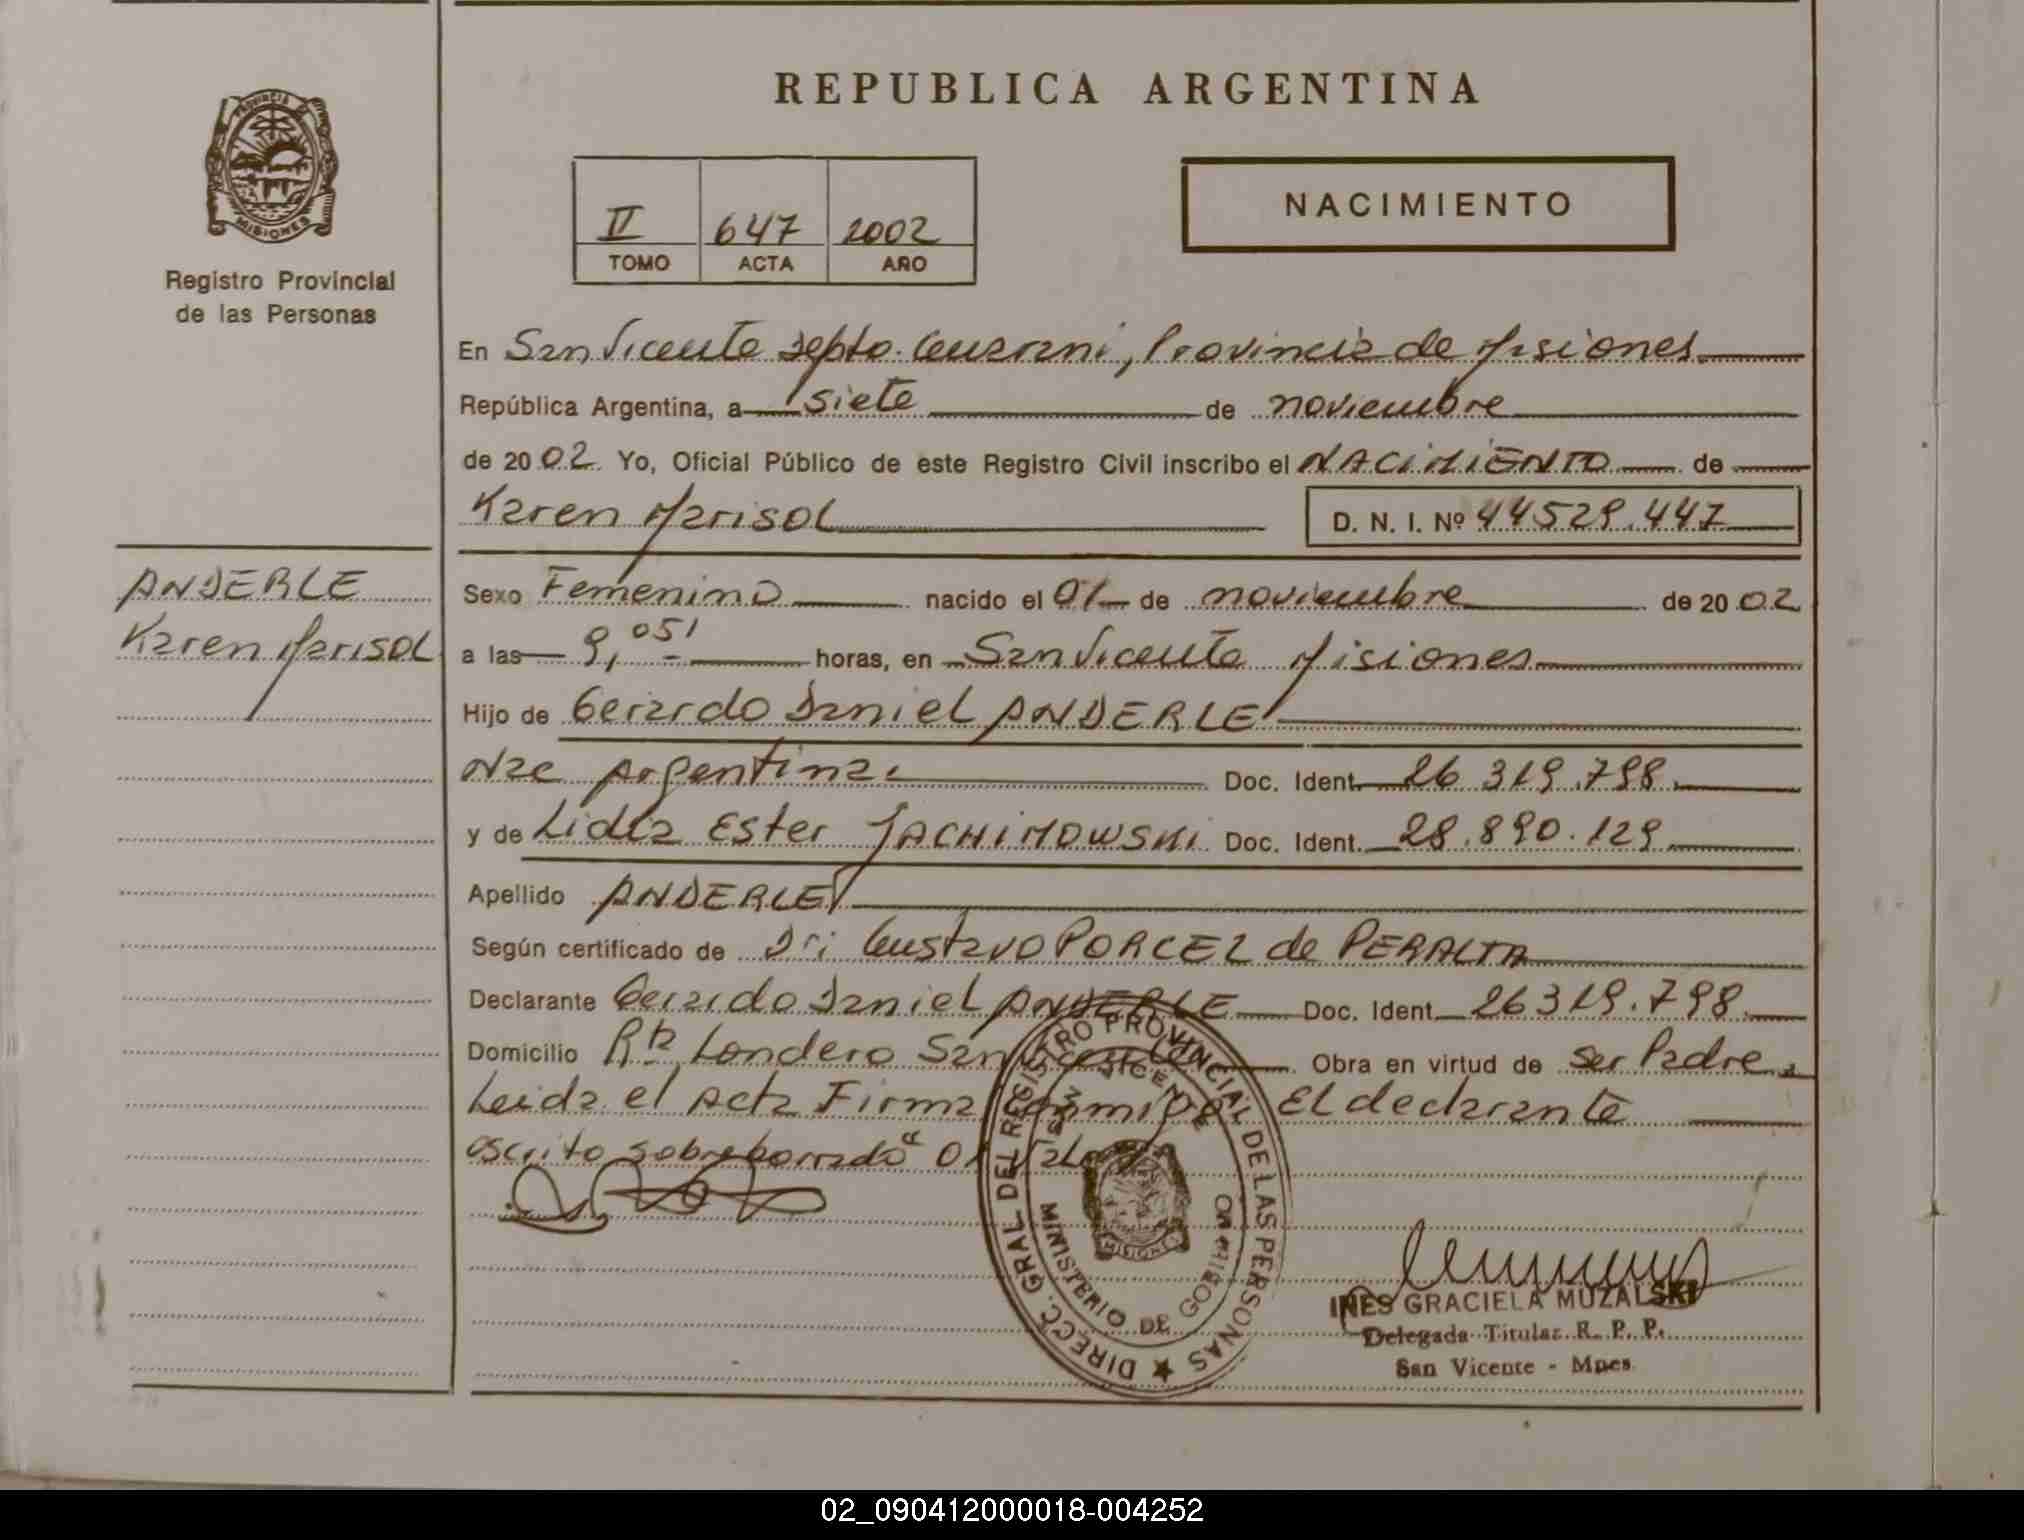 REPUBLICA ARGENTINA
PROVINCIA DE
MISIONES
Registro Provincial
de las Personas
II 647 2002
TOMO ACTA AÑO
NACIMIENTO
En San Vicente Depto. Guarani, Provincia de Misiones
República Argentina, a siete de noviembre
de 2002 Yo, Oficial Público de este Registro Civil inscribo el NACIMIENTO de
Karen Marisol D. N. I. Nº 44529.447
ANDERLE
Karen Marisol
Sexo Femenino nacido el 01 de noviembre de 2002
a las 9,05' horas, en San Vicente Misiones
Hijo de Gerardo Daniel ANDERLE
Nac Argentina. Doc. Ident. 26.319.798.
y de Lidia Ester JACHIMOWSKI Doc. Ident. 28.890.129
Apellido ANDERLE
Según certificado de Dr. Gustavo PORCEL de PERALTA
Declarante Gerardo Daniel ANDERLE Doc. Ident. 26319.798.
Domicilio Rta Londero San Vicente Obra en virtud de ser Padre.
Leida el Acta Firma conmigo El declarante
escrito sobreborrado " 01 Vale
DIRECC. GRAL. DEL REGISTRO PROVINCIAL DE LAS PERSONAS
SAN VICENTE
MISIONES
MINISTERIO DE GOBIERNO
INES GRACIELA MUZALSKI
Delegada Titular R. P. P.
San Vicente - Mnes.
02_090412000018-004252